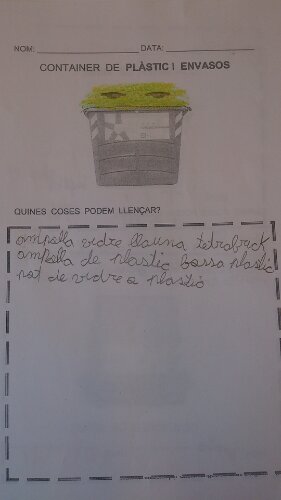 NOM: DATA:
CONTAINER DE PLÀSTIC I ENVASOS
QUINES COSES PODEM LLENÇAR?
ampolla vidre llauna tetrabrick
ampolla de plastic bossa plastic
pot de vidre o plastic